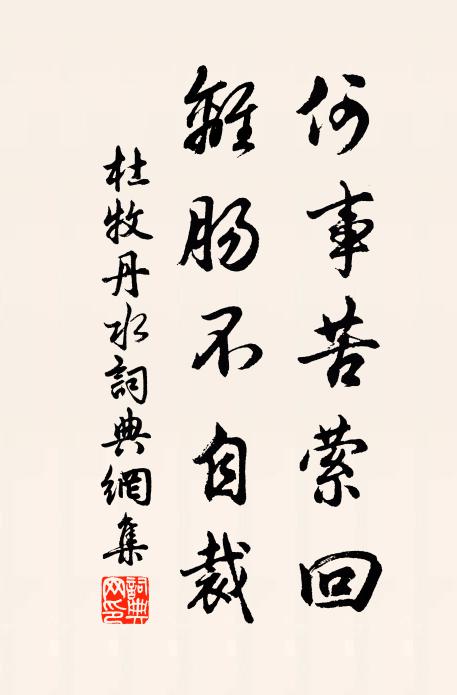 何事苦萦回
離肠不自裁
杜牧丹水詞典網集
詞典网印